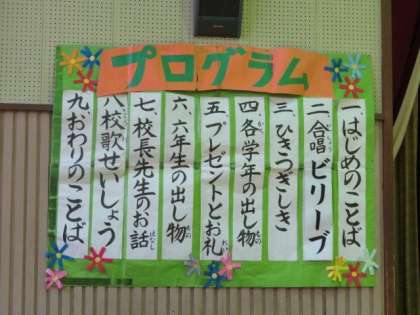 プログラム
一、はじめのことば
二、合唱ビリーブ
三、ひきつぎしき
四、各学年の出し物
五、プレゼントとお礼
六、六年生の出し物
七、校長先生のお話
八、校歌せいしょう
九、おわりのことば